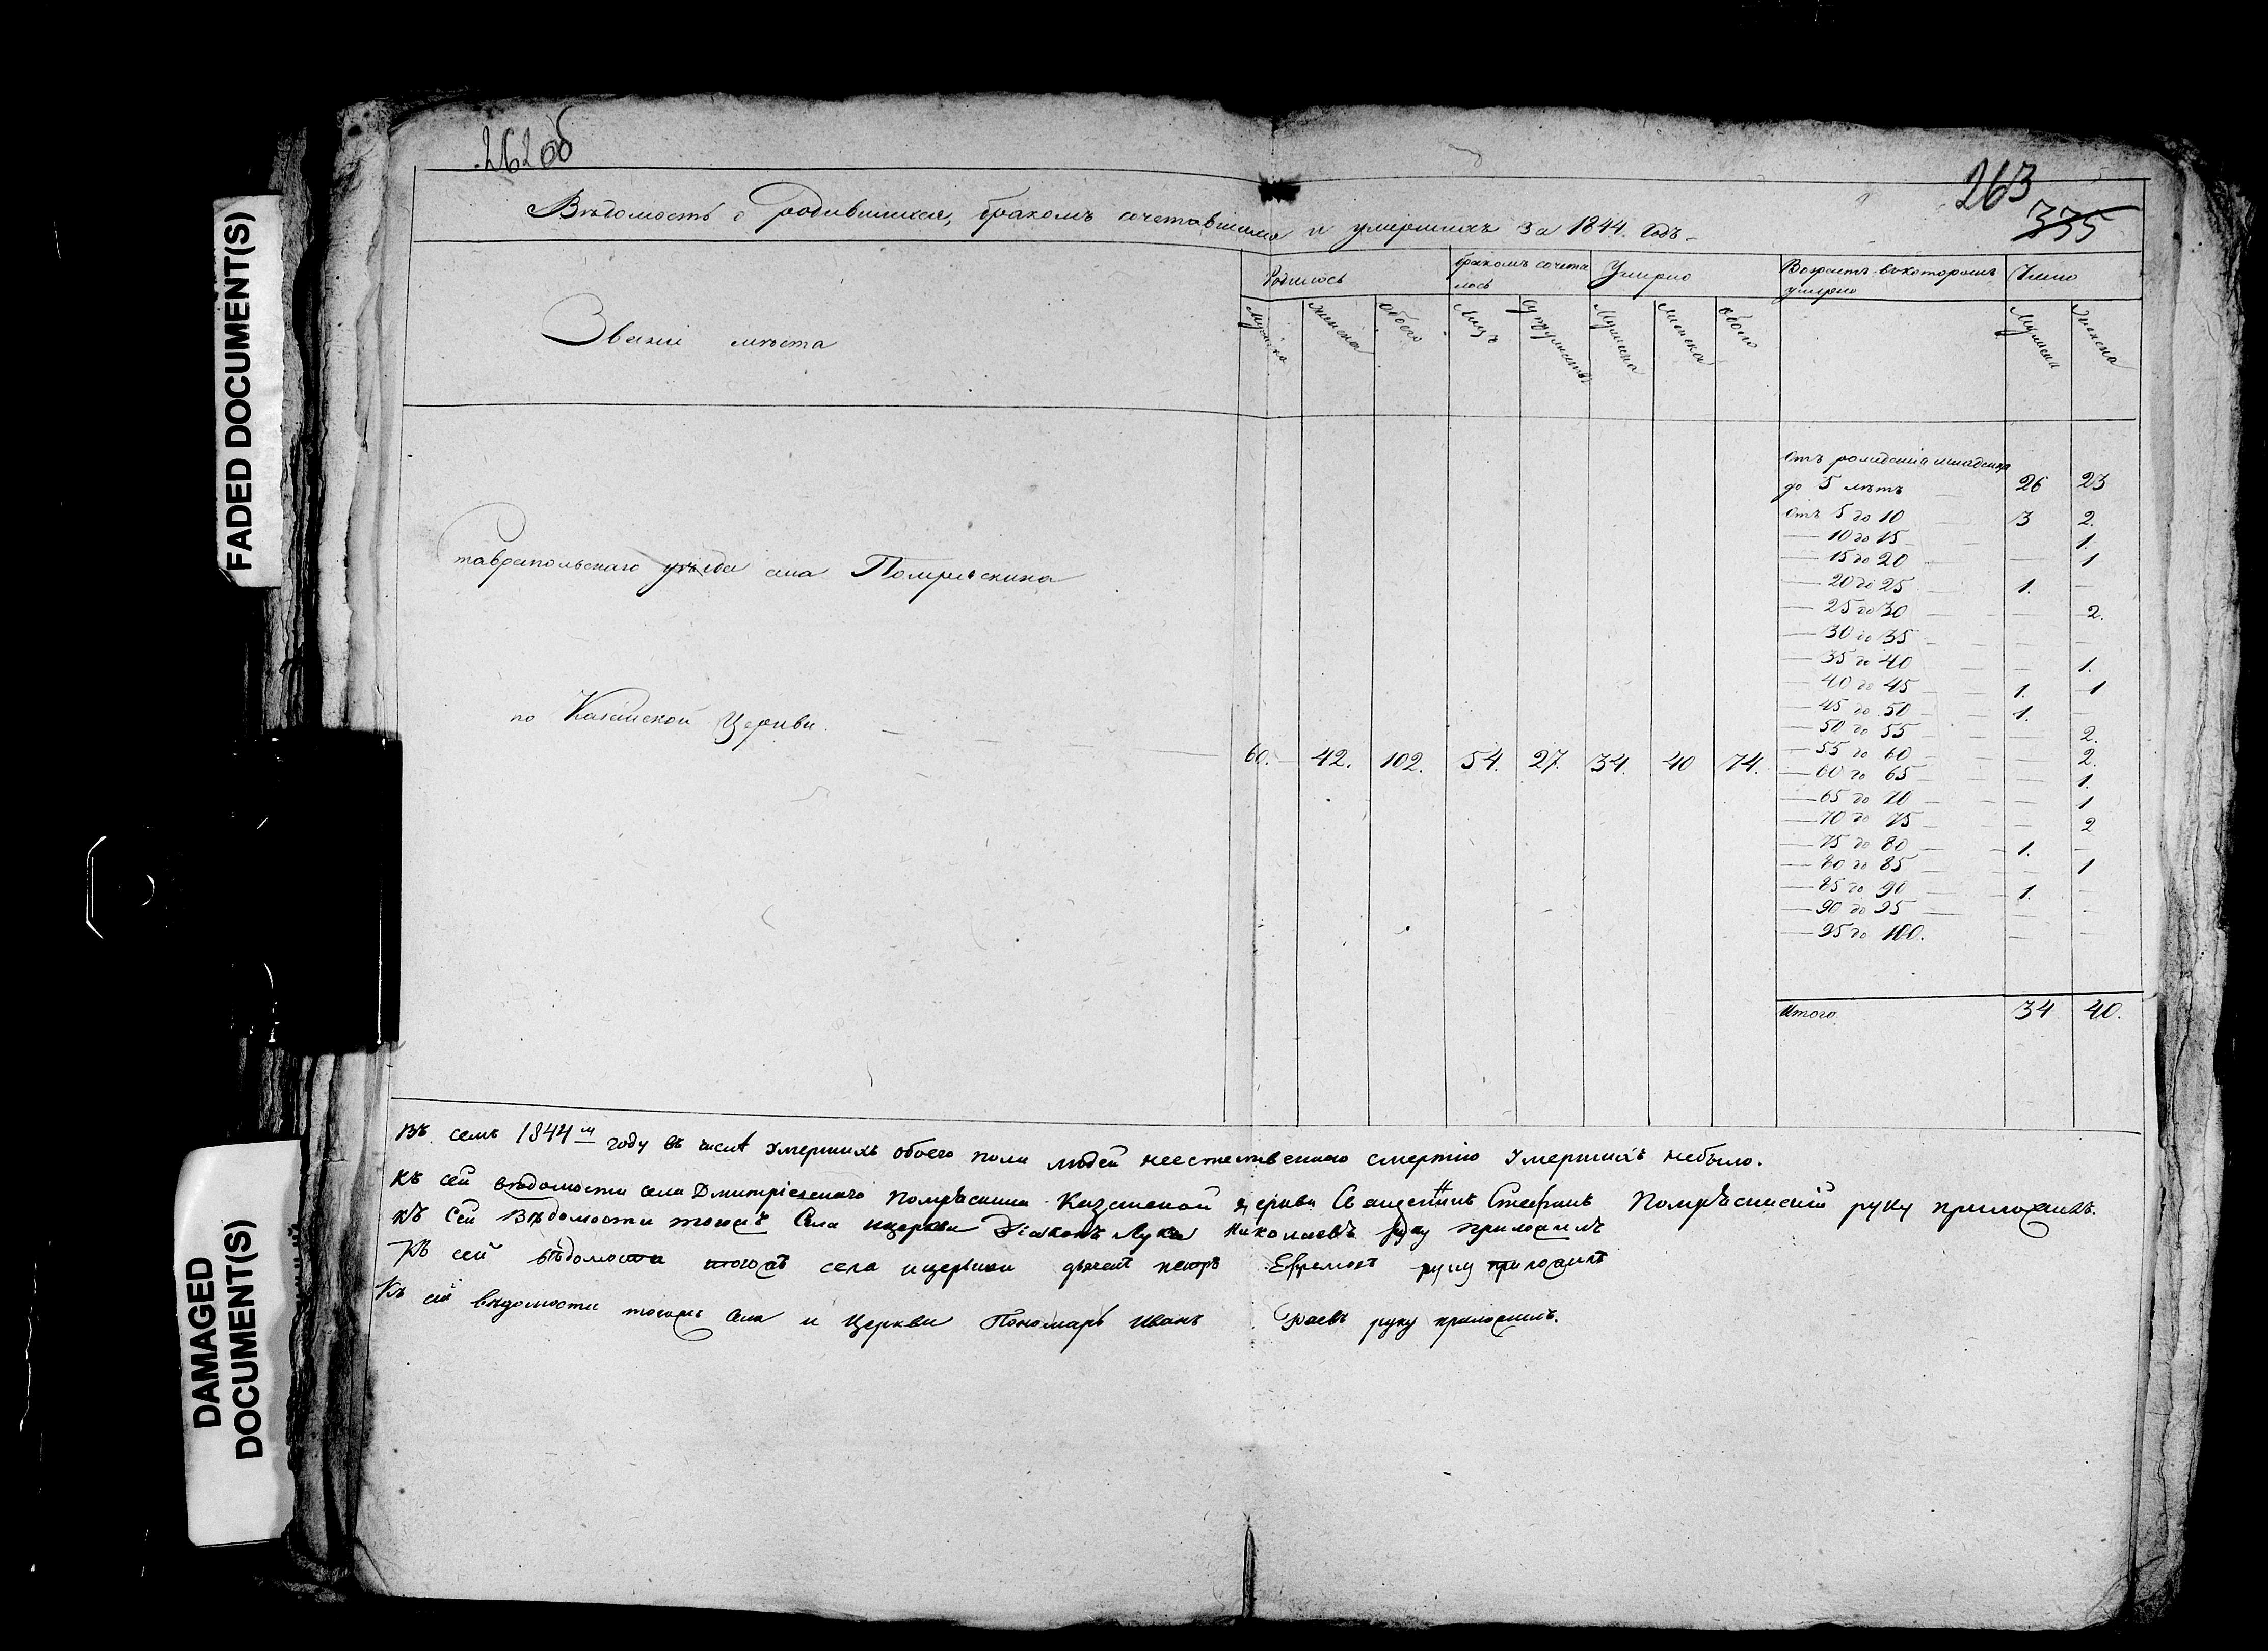 FADED DOCUMENT(S)
DAMAGED
DOCUMENT(S)
262 об
263
335
Вѣдомость о родившихся, бракомъ сочетавшихся и умершихъ за 1844. годъ
Званіе мѣста
Родилось
бракомъ сочета
лось
Умерло
Возрастъ въ которомъ
умерло
Число
Мужеска
Женска
обоего
Лицъ
Супружествъ
Мужеска
Женска
обоего
Мужеска
Женска
Ставропольскаго уѣзда села Помряскина
по Казанской Церкви.
60. 42. 102. 54. 27. 34. 40 74.
Отъ рожденія младенца
до 5 лѣтъ 26 23
Отъ 5 до 10 3 2.
— 10 до 15 — 1.
— 15 до 20 — 1
— 20 до 25 1. —
— 25 до 30 — 2.
— 30 до 35 — —
— 35 до 40 — 1.
— 40 до 45 1. 1
— 45 до 50 1. —
— 50 до 55 — 2.
— 55 до 60 — 2.
— 60 до 65 — 1.
— 65 до 70 — 1
— 70 до 75 — 2
— 75 до 80 1. —
— 80 до 85 — 1
— 85 до 90 1. —
— 90 до 95 — —
— 95 до 100. — —
Итого 34 40.
Въ семъ 1844м году въ числѣ умершихъ обоего пола людей неестественною смертію умершихъ небыло.
Къ сей вѣдомости села Дмитріевскаго Помряскина Казанской церкви Священникъ Стефанъ Помряскинскій руку приложилъ.
Къ Сей Вѣдомости тогожъ Села ицеркви Діаконъ Лука Николаевъ руку приложилъ
Къ сей вѣдомости тогожъ села ицеркви дьячекъ Ефремовъ руку приложилъ
Къ сей вѣдомости тогожъ Села и Церкви Пономарь Иванъ руку приложилъ.